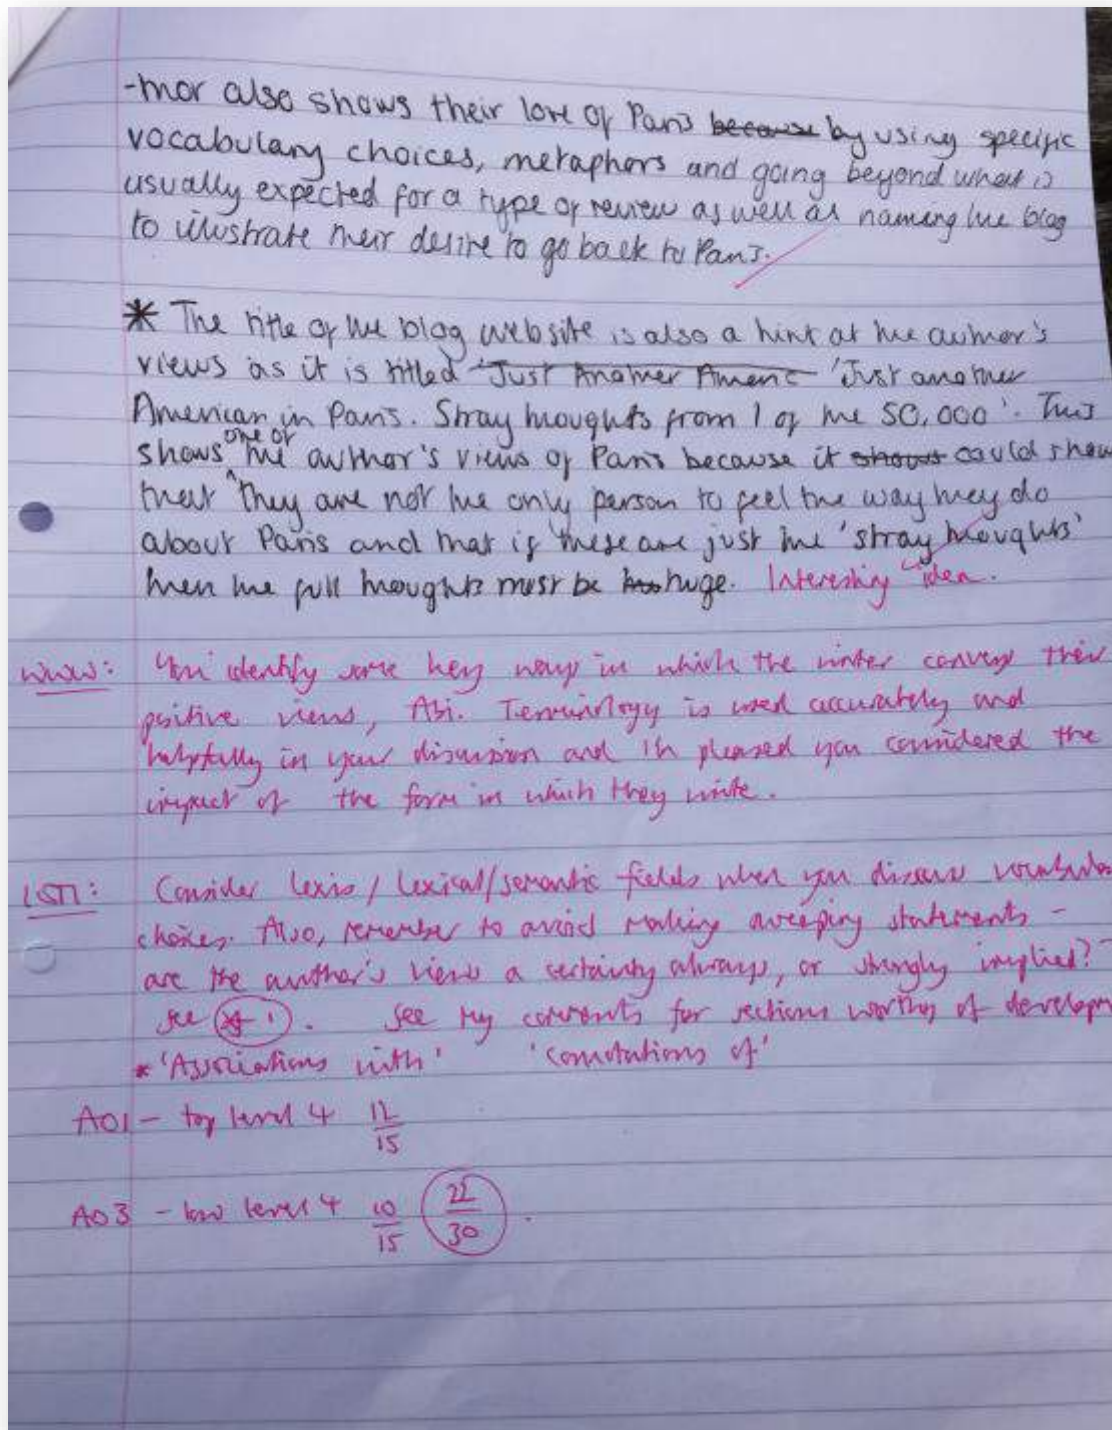 -mor also shows their love of Paris because by using specific
vocabulary choices, metaphors and going beyond what is
usually expected for a type of review as well as naming the blog
to illustrate their desire to go back to Paris.
* The title of the blog website is also a hint at the author's
views as it is titled 'Just Another Americ 'Just another
American in Paris. Stray thoughts from 1 of the 50,000'. This
shows one of the author's views of Paris because it shows could show
that they are not the only person to feel the way they do
about Paris and that if these are just the 'stray thoughts'
then the full thoughts must be huge. Interesting idea.
WWW: You identify some key ways in which the writer conveys their
positive views, Abi. Terminology is used accurately and
helpfully in your discussion and I'm pleased you considered the
impact of the form in which they write.
Consider lexis / lexical/semantic fields when you discuss
choices. Also, remember to avoid making sweeping statements -
are the author's views a certainty always, or strongly implied?
see * 1. See my comments for sections worthy of develop
* 'Associations with' 'connotations of'
AO1 - top level 4 12/15
AO3 - low level 4 10/15 22/30.